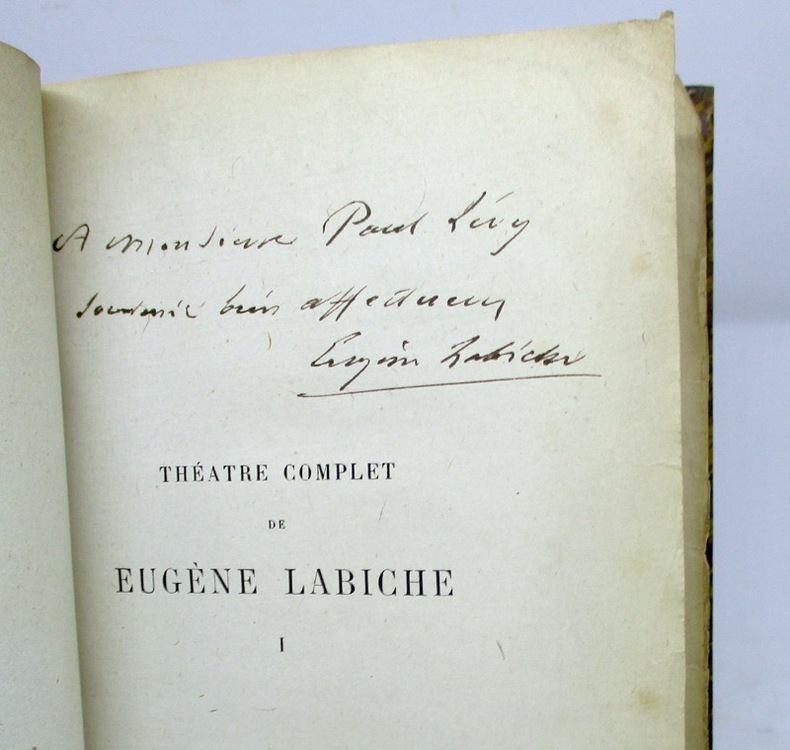 A Monsieur Paul Lévy
souvenir bien affectueux
Eugène Labiche
THÉATRE COMPLET
DE
EUGÈNE LABICHE
I